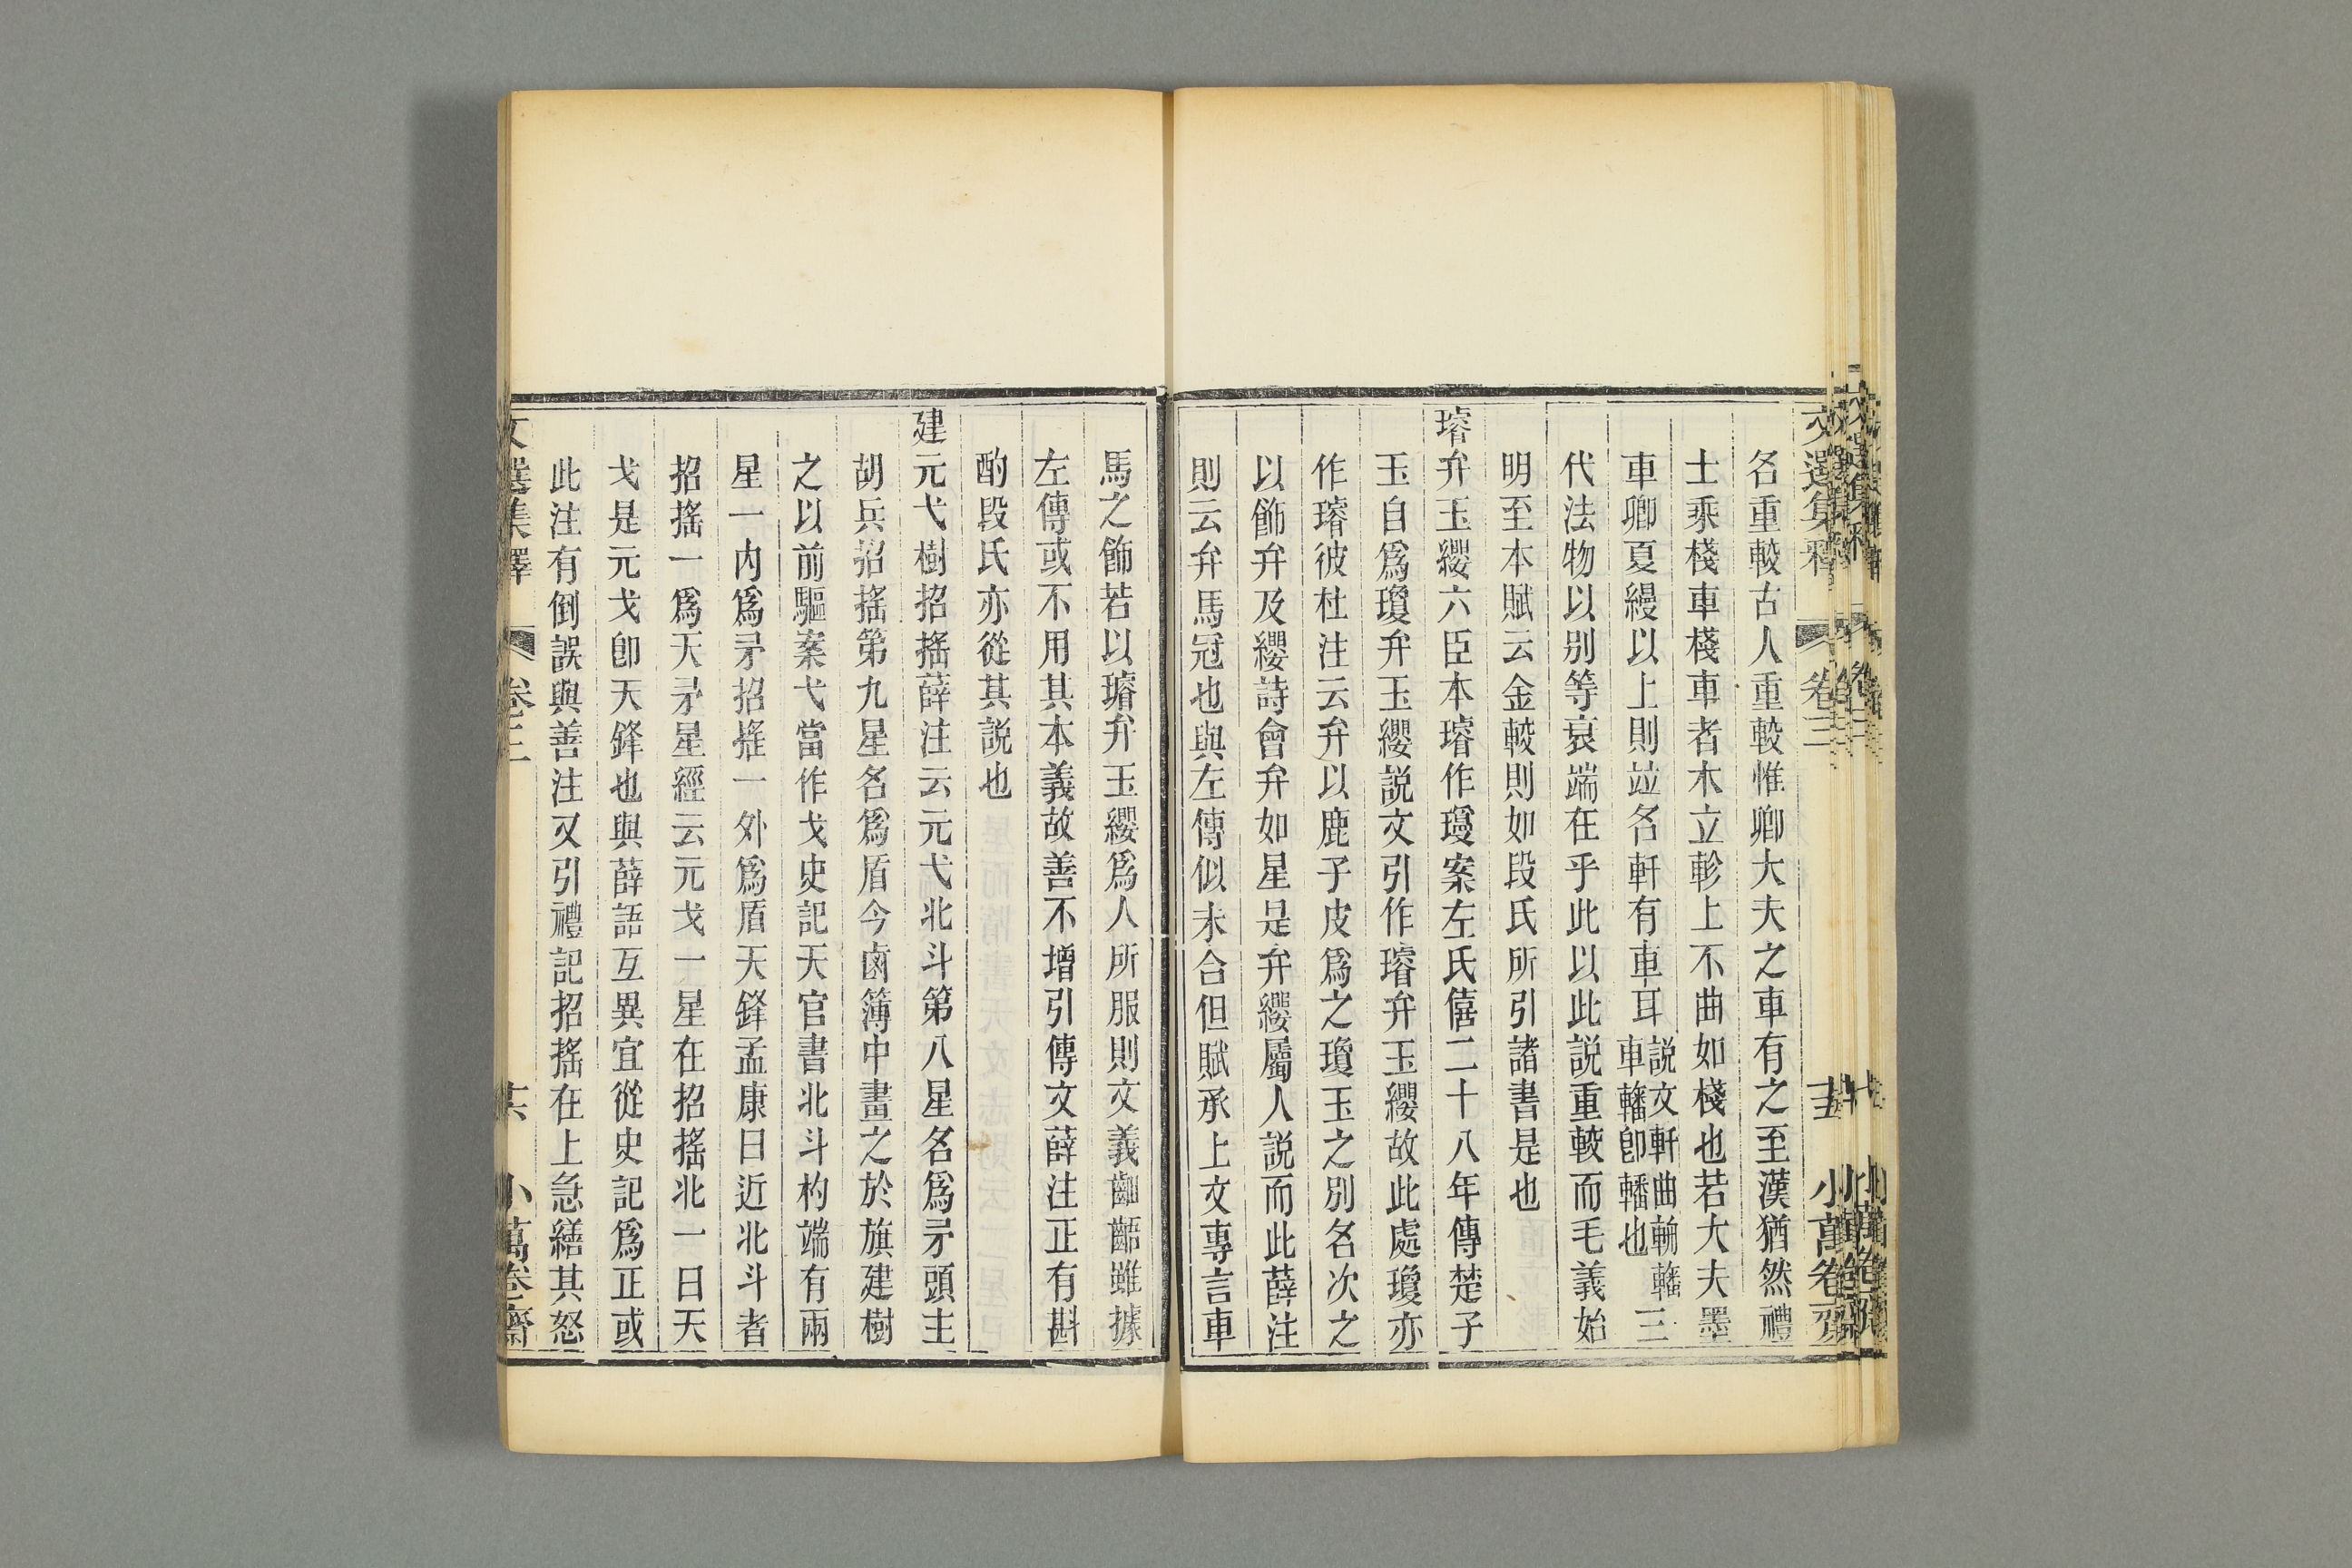 名重較古人重較惟卿大夫之車有之至漢猶然禮
士乘棧車棧車者木立軫上不曲如棧也若大夫墨
車卿夏縵以上則竝名軒有車耳說文軒曲輈轓車轓卽轓也三
代法物以别等衰端在乎此以此説重較而毛義始
明至本賦云金較則如段氏所引諸書是也
璿弁玉纓六臣本璿作璚案左氏僖二十八年傳楚子
玉自爲瓊弁玉纓説文引作璿弁玉纓故此處瓊亦
作璿彼杜注云弁以鹿子皮爲之瓊玉之别名次之
以飾弁及纓詩會弁如星是弁纓屬人説而此薛注
則云弁馬冠也與左傳似未合但賦承上文專言車
馬之飾若以璿弁玉纓爲人所服則文義齟齬雖據
左傳或不用其本義故善不增引傳文薛注正有斟
酌段氏亦從其説也
建元弋樹招搖薛注云元弋北斗第八星名爲矛頭主
胡兵招搖第九星名爲盾今鹵簿中畫之於旗建樹
之以前驅案弋當作戈史記天官書北斗杓端有兩
星一内爲矛招搖一外爲盾天鋒孟康曰近北斗者
招搖一爲天矛星經云元戈一星在招搖北一曰天
戈是元戈卽天鋒也與薛語互異宜從史記爲正或
此注有倒誤與善注又引禮記招搖在上急繕其怒
文選集釋
卷三
小萬卷齋